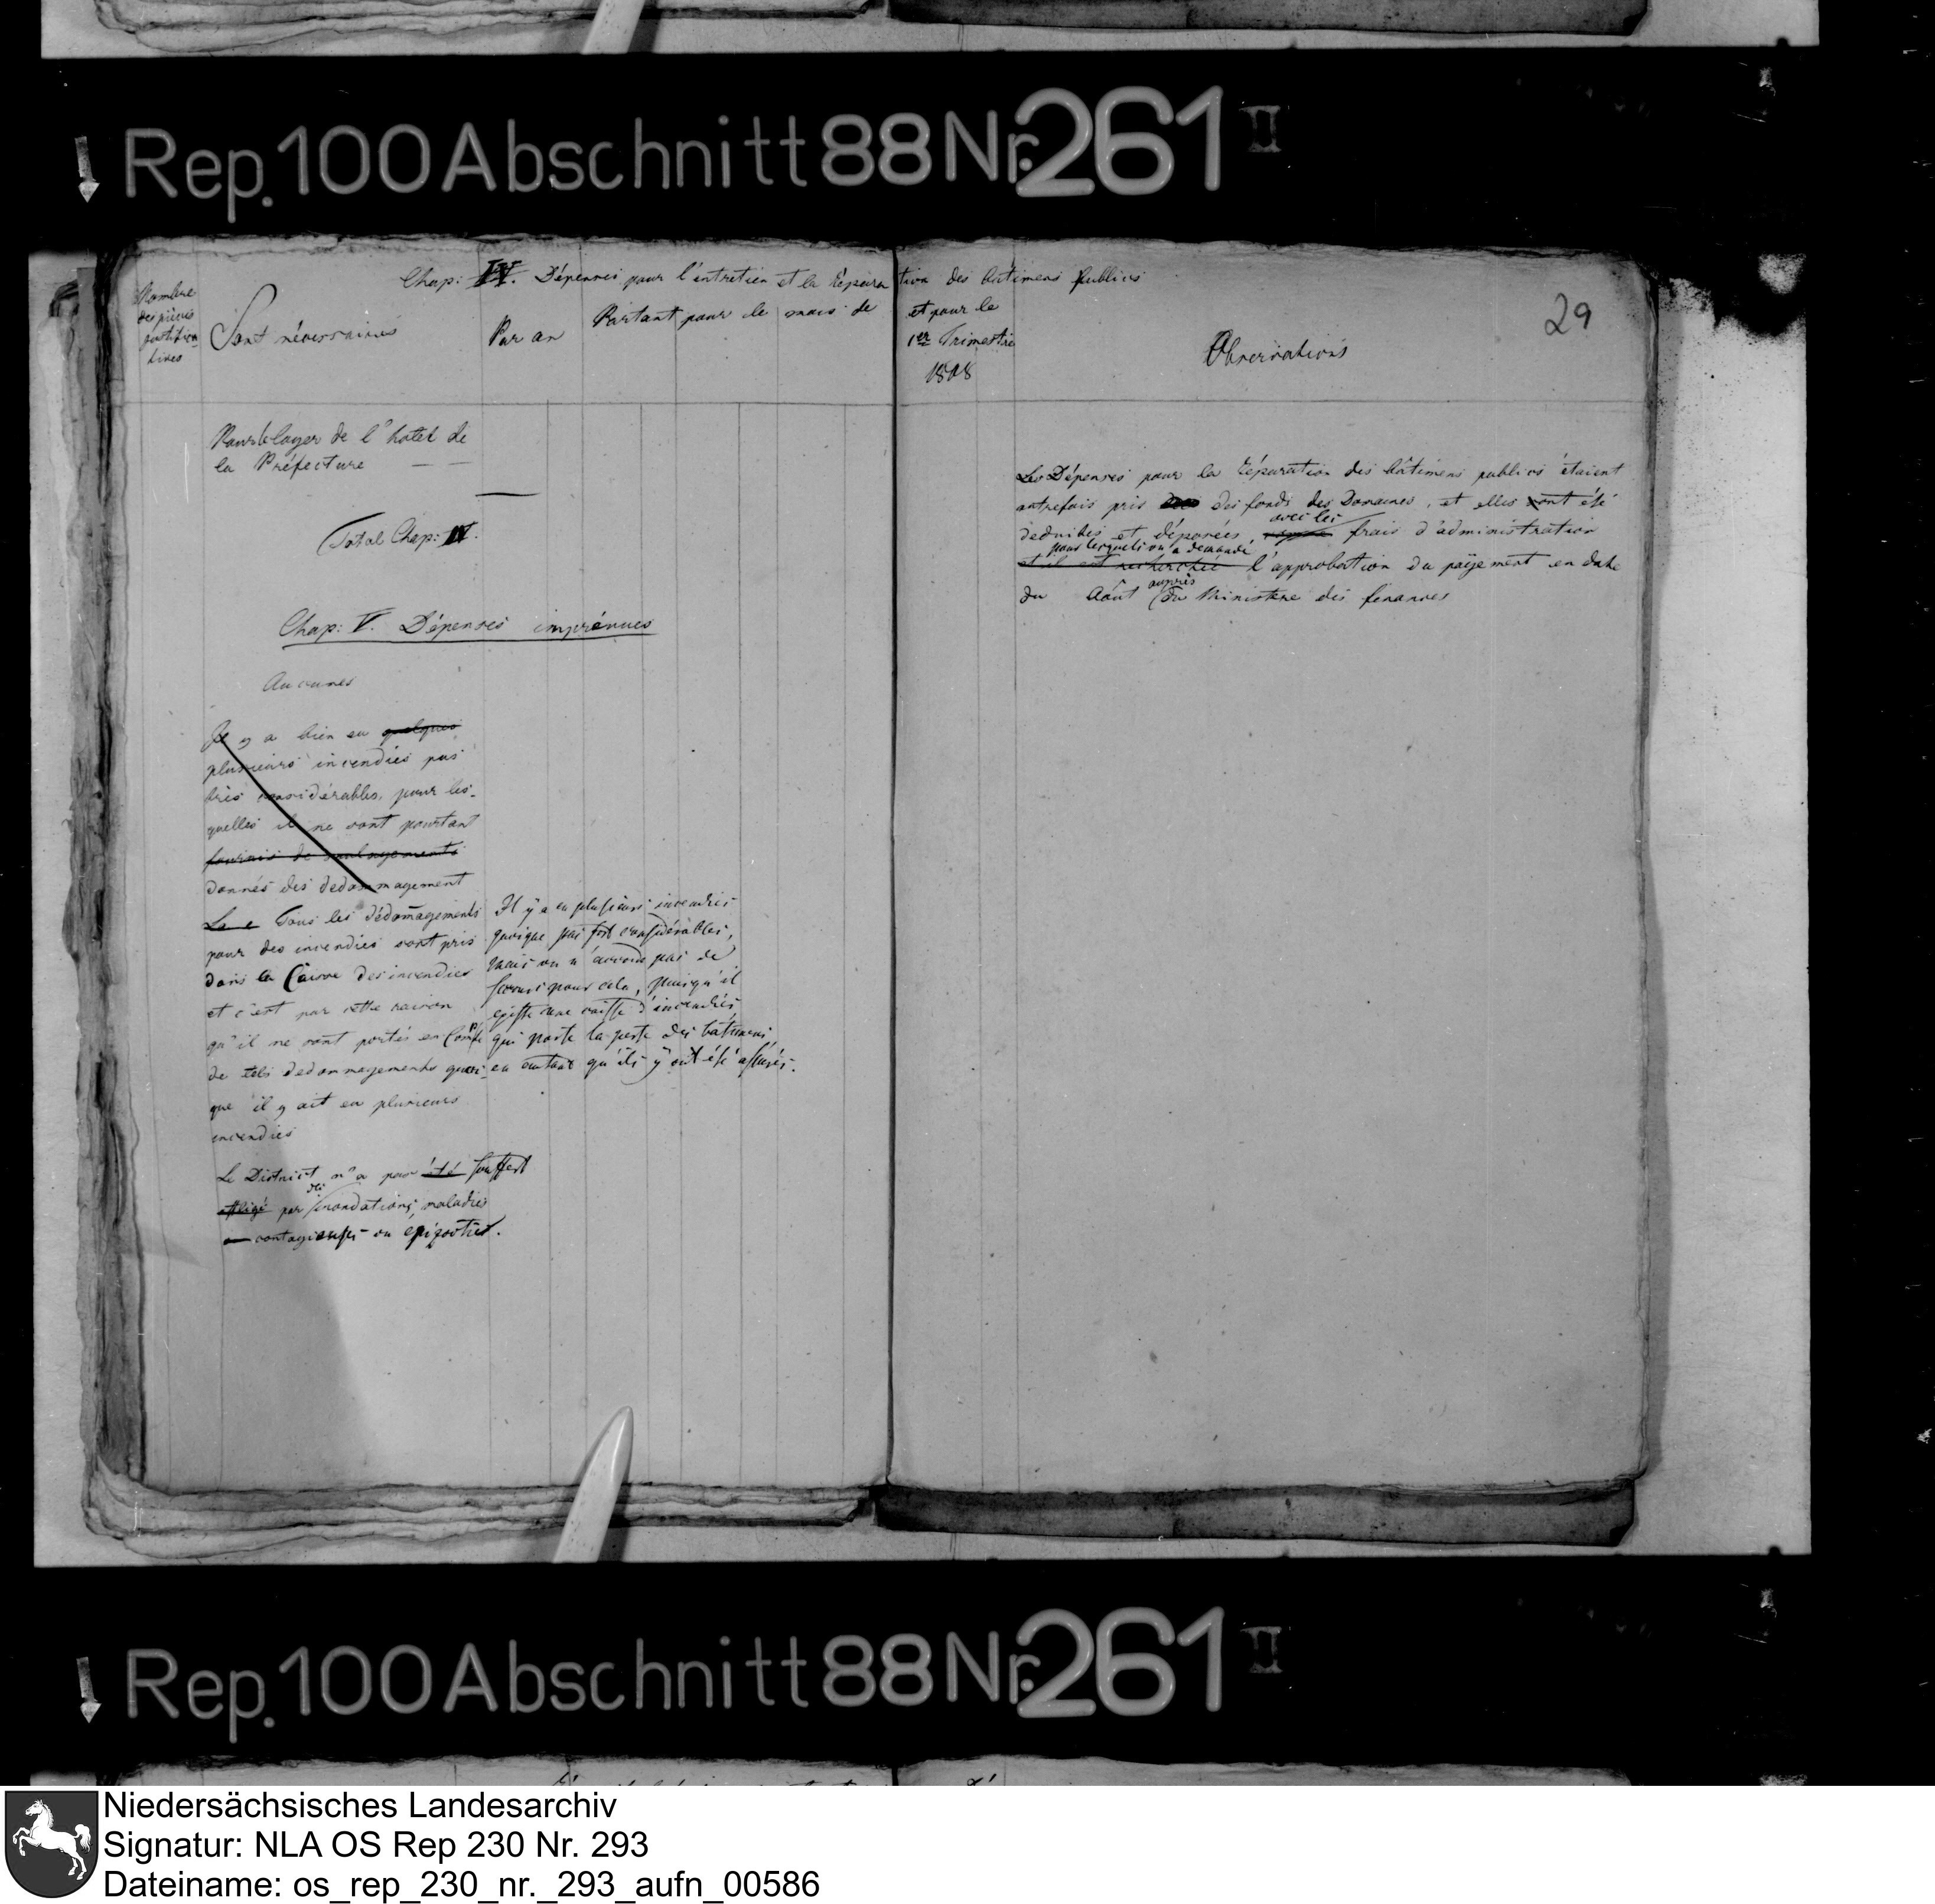 Rep. 100 Abschnitt 88 Nr. 261 II
Chap: IV. Dépenses pour l'entretien et la réparation des batimens publics
29
Nombre
des pièces
justifica
tives
Sont nécessaires
Par an
Partant pour le mois de
et pour le
1er Trimestre
1808
Observations
Pour le loyer de l'hotel de
la Préfecture — —
Total Chap: IV.
Chap: V. Dépenses imprévues
Aucunes
Il y a bien eu quelques
plusieurs incendies pas
très considérables, pour les-
quelles il ne sont pourtant
fournis de
donnés des dedommagement
La e Tous les dédomagements
pour des incendies sont pris
dans la Caisse des incendies
et c'est par cette raison
qu'il ne sont portés en Compte
de tels dedommagements quoi-
que il y ait eu plusieurs
incendies
Le District n'a pas été souffert
affligé par des inondations, maladies
contagieuses ou épizooties.
Il ÿ a eu plusieurs incendies
quoique pas fort considérables,
mais on n'accorde pas de
secours pour cela, puisqu'il
existe une caisse d'incendies,
qui porte la perte des bâtimens,
en autant qu'ils ÿ ont été assurés.
Les Dépenses pour la réparation des bâtimens publics étaient
autrefois pris des fonds des Domaines, et elles ont été
déduites et déposées, avec les frais d'administration
et il est recherché pour lesquels on a demandé l'approbation du païement en date
du Août auprès du Ministere des finances
Rep. 100 Abschnitt 88 Nr. 261 II
Niedersächsisches Landesarchiv
Signatur: NLA OS Rep 230 Nr. 293
Dateiname: os_rep_230_nr._293_aufn_00586